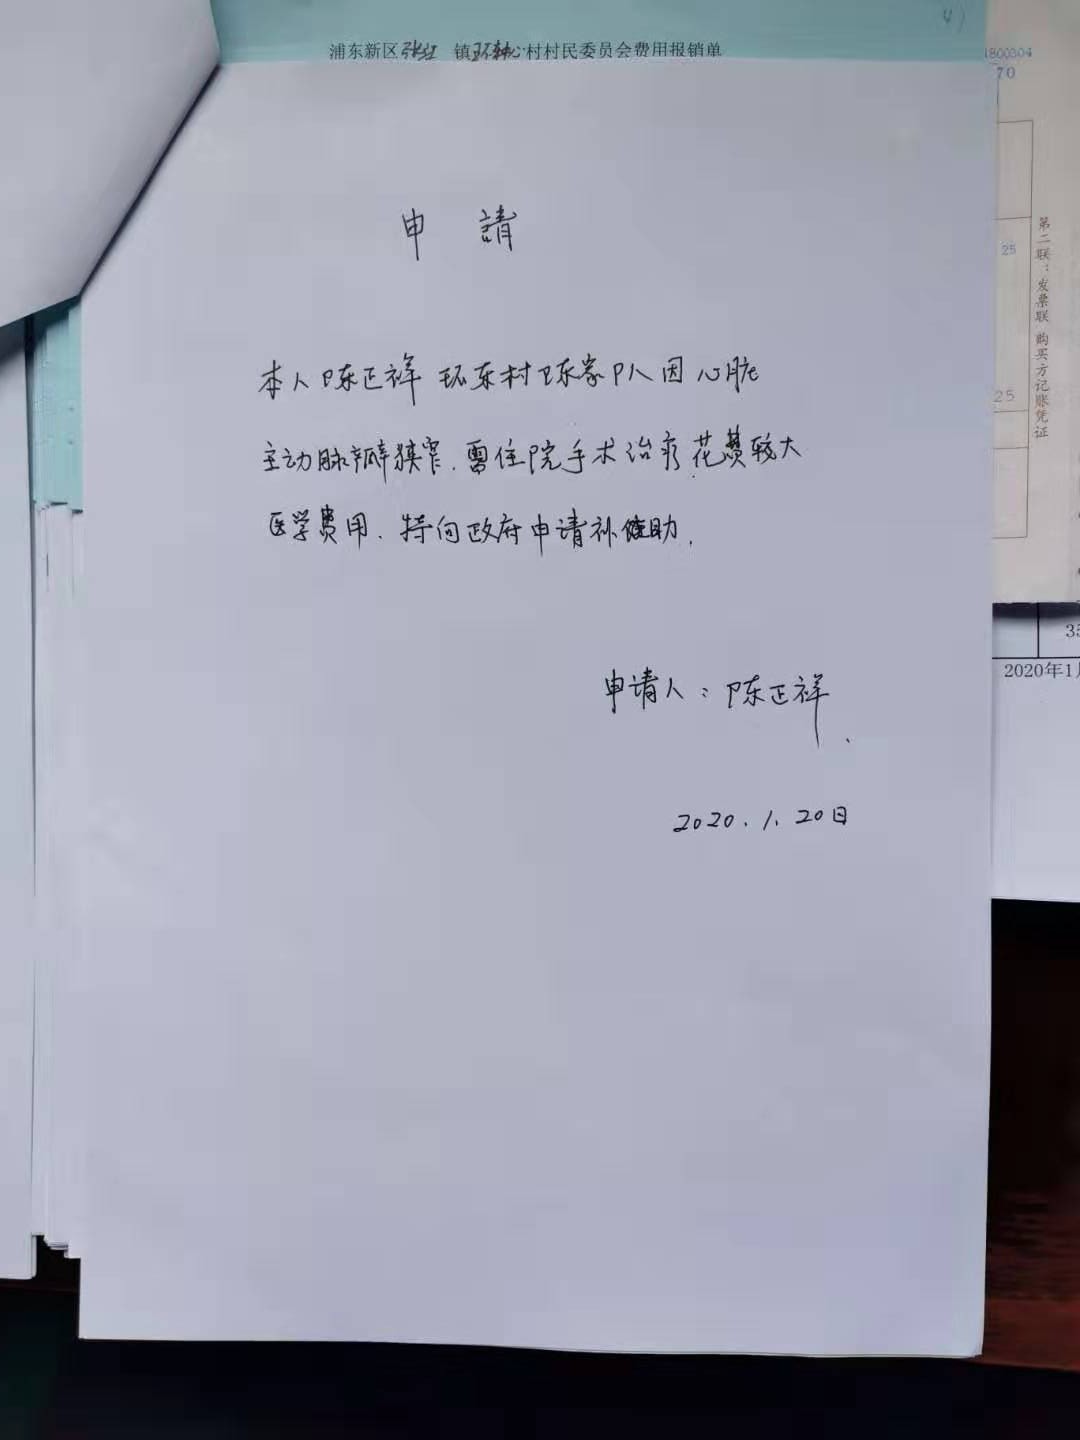 浦东新区张江 镇环东村村民委员会费用报销单
1800304
70
申 請
本人陈正祥 环东村陈家队因心脏
主动脉瓣狭窄.需住院手术治疗花费较大
医学费用.特向政府申请补助.
申请人：陈正祥
2020.1.20日
25
25
第二联：发票联 购买方记账凭证
35
2020年1月